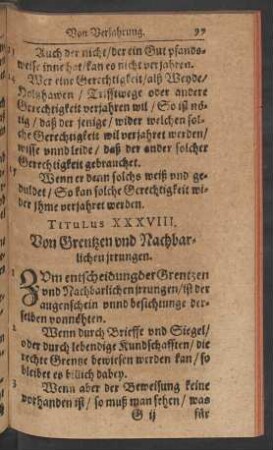 Von Versahrung. 99
Auch der nicht/der ein Gut pfands-
weise inne hat/kan es nicht verjahren.
Wer eine Gerechtigkeit/alß Weyde/
Holtzhawen / Trifftwege oder andere
Gerechtigkeit verjahren wil / So ist nö-
tig / daß der jenige / wider welchen sol-
che Gerechtigkeit wil verjahret werden/
wisse vnnd leide / daß der ander solcher
Gerechtigkeit gebrauchet.
Wenn er denn solchs weiß vnd ge-
duldet / So kan solche Gerechtigkeit wi-
der jhme verjahret werden.
TITULUS XXXVIII.
Von Grentzen vnd Nachbar-
lichen jrrungen.
ZVm entscheidung der Grentzen
vnd Nachbarlichen jrrungen / ist der
augenschein vnnd besichtunge der-
selben vonnöhten.
Wenn durch Brieffe vnd Siegel/
oder durch lebendige Kundschafften / die
rechte Grentze bewiesen werden kan / so
bleibet es billich dabey.
3 Wenn aber der Beweisung keine
vorhanden ist / so muß man sehen / was
G ij für